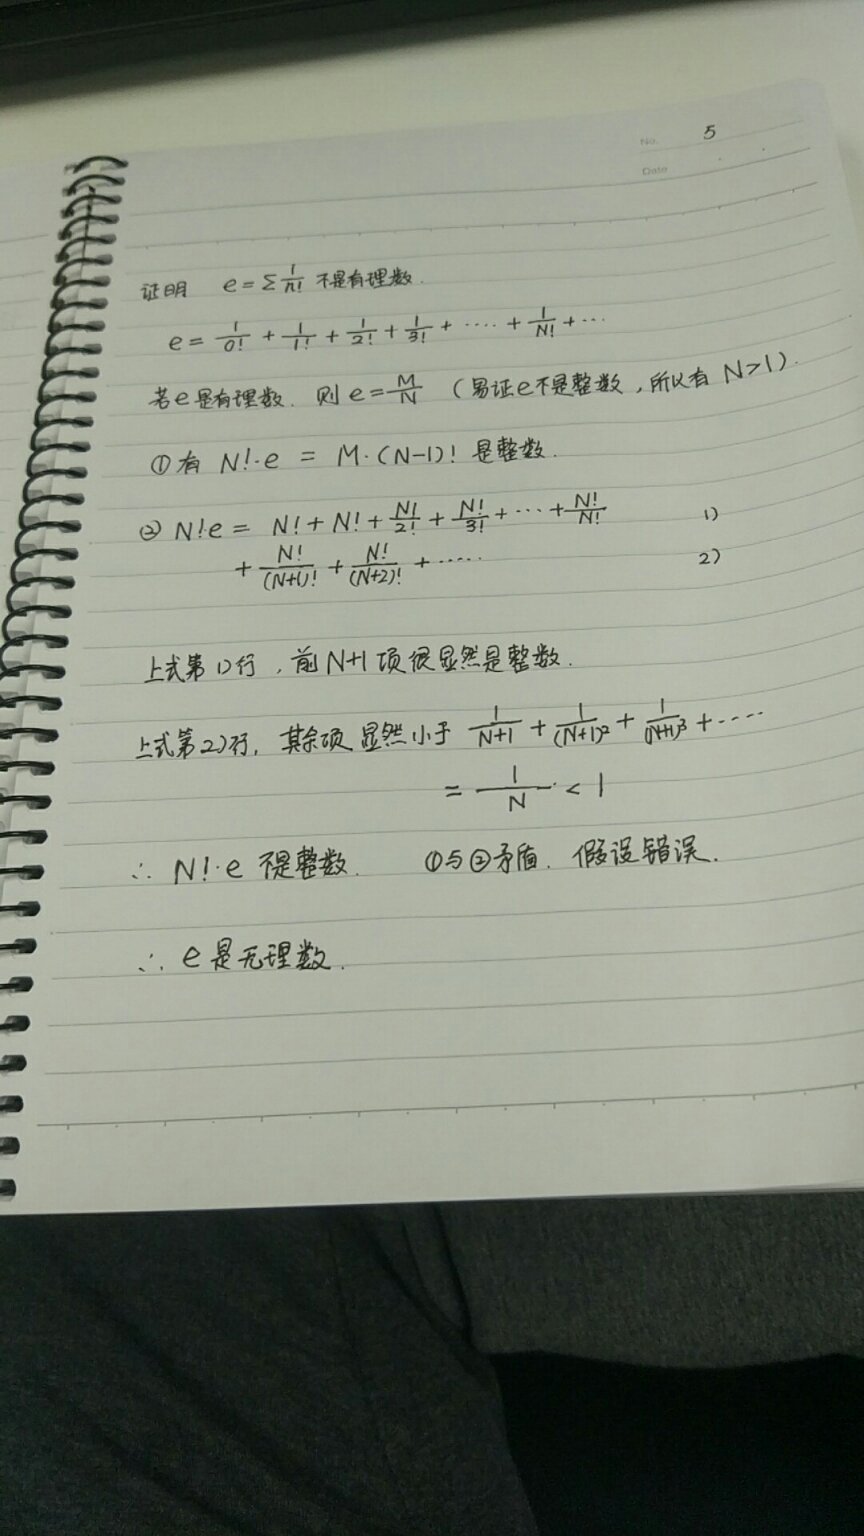 No. 5
Date
证明 e = Σ 1/n! 不是有理数.
e = 1/0! + 1/1! + 1/2! + 1/3! + ···· + 1/N! + ···
若e是有理数. 则 e = M/N (易证e不是整数, 所以有 N>1).
①有 N!·e = M·(N-1)! 是整数.
② N!e = N! + N! + N!/2! + N!/3! + ··· + N!/N! 1)
+ N!/(N+1)! + N!/(N+2)! + ····· 2)
上式第1)行, 前N+1项很显然是整数.
上式第2)行, 其余项显然小于 1/(N+1) + 1/(N+1)² + 1/(N+1)³ + ····
= 1/N < 1
∴ N!·e 不是整数. ①与②矛盾. 假设错误.
∴ e是无理数.